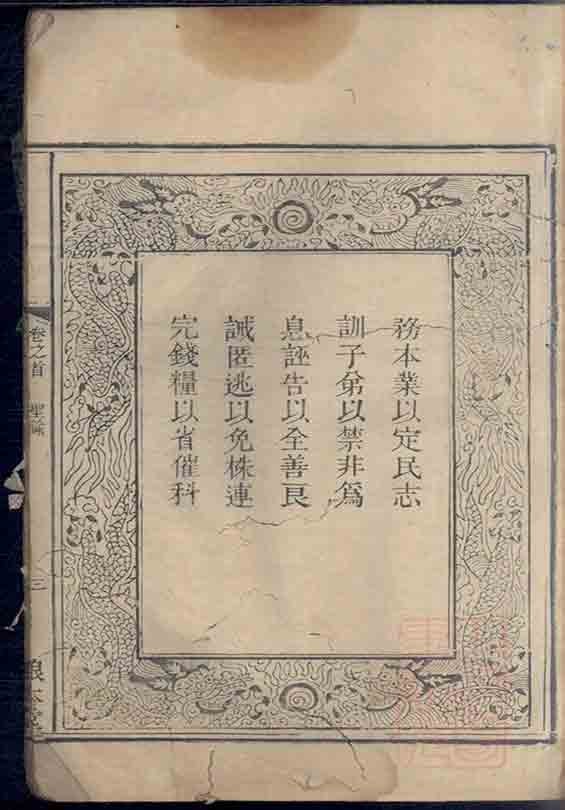 務本業以定民志
訓子弟以禁非爲
息誣告以全善良
誡匿逃以免株連
完錢糧以省催科
卷之首 聖諭
三